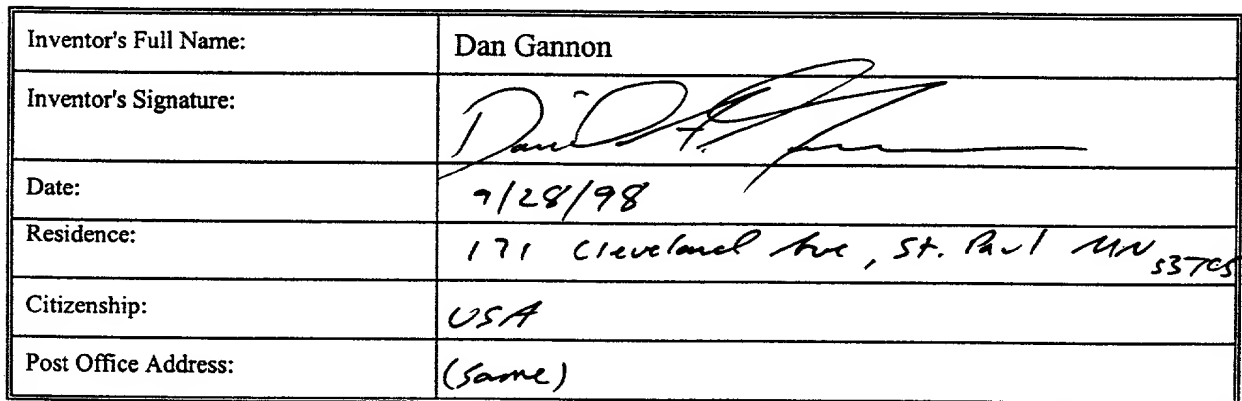 Inventor's Full Name: Dan Gannon
Inventor's Signature: Daniel F.
Date: 9/28/98
Residence: 171 Cleveland Ave, St. Paul MN
Citizenship: USA
Post Office Address: (same)